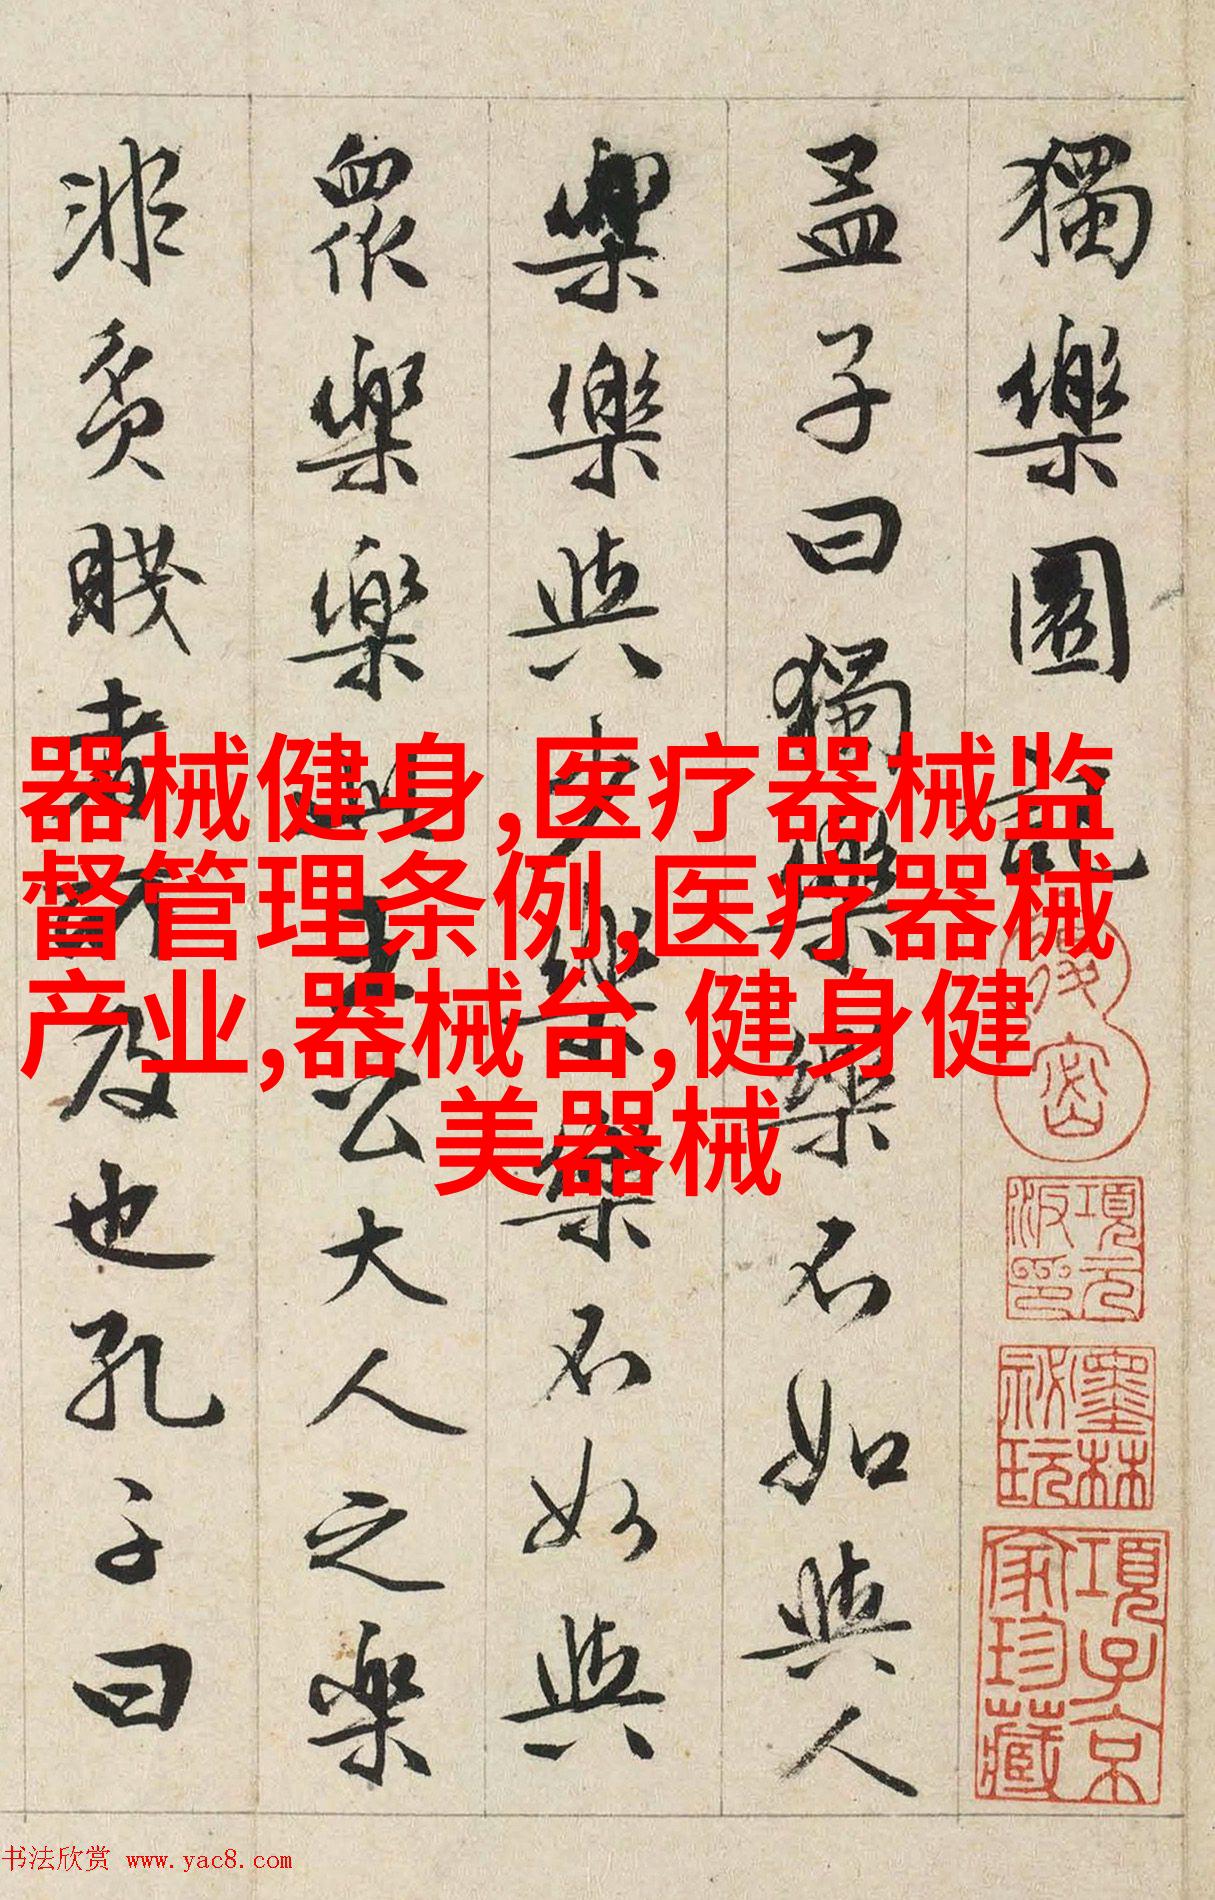 獨樂園記
孟子曰獨樂樂不如與人
樂樂與少樂樂不如與
眾樂樂此王公大人之樂
非貧賤者所及也孔子曰
器械健身,医疗器械监
督管理条例,医疗器械
产业,器械台,健身健
美器械
項元汴印
墨林祕玩
項子京家珍藏
书法欣赏 www.yac8.com